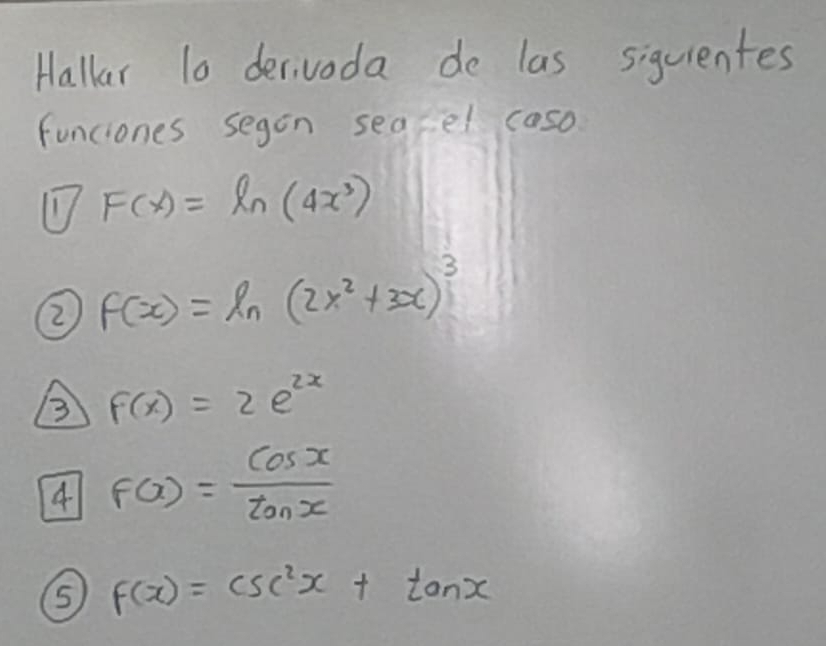 Hallar la derivada de las siguientes
funciones según sea el caso
1 F(x) = ln (4x³)
2 f(x) = ln (2x² + 3x)³
3 f(x) = 2 e^{2x}
4 f(x) = cos x / tan x
5 f(x) = csc²x + tanx